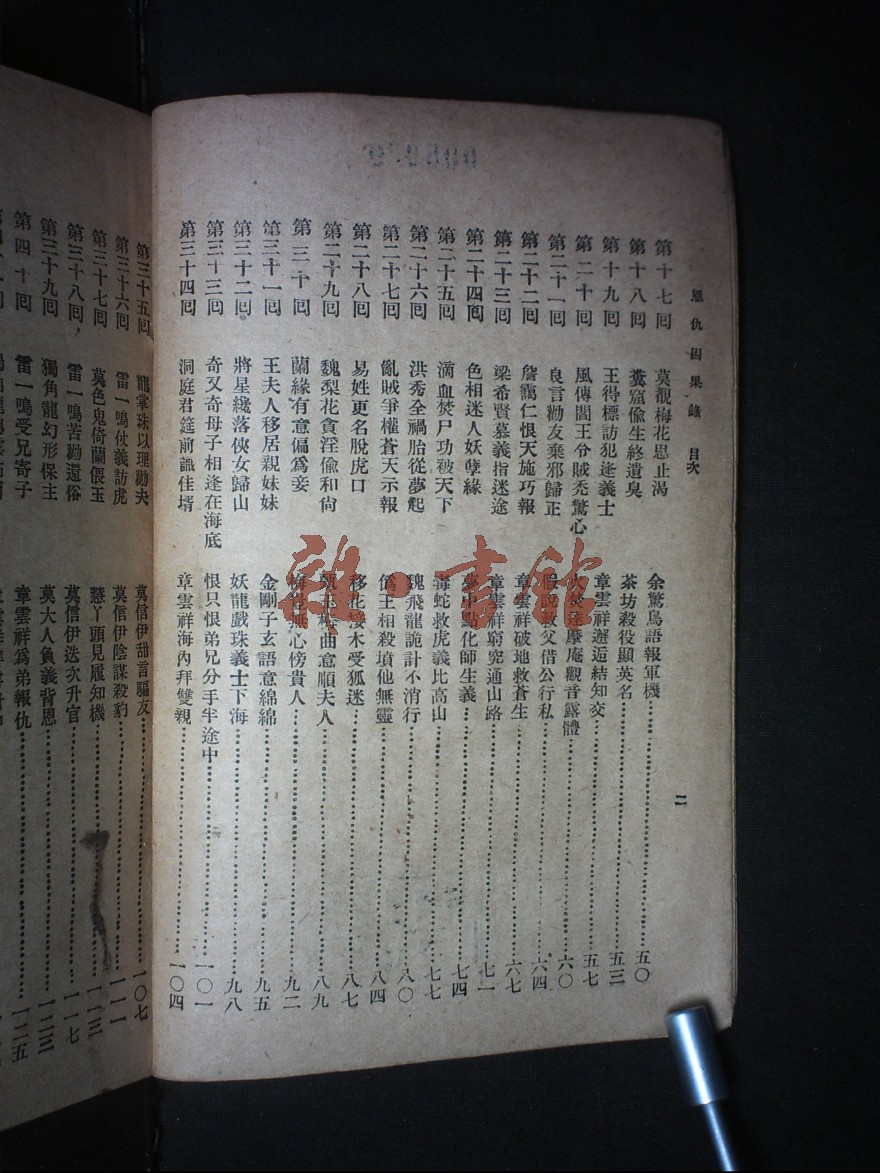 恩仇因果錄 目次
二
第十七回 莫覩梅花思止渴 余驚鳥語報軍機 五〇
第十八回 糞窟偷生終遺臭 茶坊殺役顯英名 五三
第十九回 王得標訪犯逢義士 章雲祥邂逅結知交 五七
第二十回 風傳閻王令賊禿驚心 火焚達摩庵觀音露體 六〇
第二十一回 良言勸友棄邪歸正 假說救父借公行私 六四
第二十二回 詹靄仁恨天施巧報 章雲祥破地救蒼生 六七
第二十三回 梁希賢慕義指迷途 章雲祥窮究通山路 七一
第二十四回 色相迷人妖孽緣 夢中點化師生義 七四
第二十五回 滴血焚尸功被天下 毒蛇救虎義比高山 七七
第二十六回 洪秀全禍胎從夢起 魏飛龍詭計不消行 八〇
第二十七回 亂賊爭權蒼天示報 僞王相殺墳他無靈 八四
第二十八回 易姓更名脫虎口 移花接木受狐迷 八七
第二十九回 魏梨花貪淫偷和尙 曲意順夫人 八九
第三十回 蘭緣有意偏爲妾 梅 無心傍貴人 九二
第三十一回 王夫人移居親妹妹 金剛子玄語意綿綿 九五
第三十二回 將星綫落俠女歸山 妖龍戲珠義士下海 九八
第三十三回 奇又奇母子相逢在海底 恨只恨弟兄分手半途中 一〇一
第三十四回 洞庭君筵前識佳壻 章雲祥海內拜雙親 一〇四
第三十五回 龍掌珠以理勸夫 莫信伊甜言騙友 一〇七
第三十六回 雷一鳴仗義訪虎 莫信伊陰謀殺豹 一一一
第三十七回 莫色鬼倚蘭偎玉 慧丫頭見履知機 一一三
第三十八回 雷一鳴苦勸還俗 莫信伊迭次升官 一一七
第三十九回 獨角龍幻形保主 莫大人負義背恩 一二三
第四十回 雷一鳴受兄寄子 章雲祥爲弟報仇 一二五
雜·書館